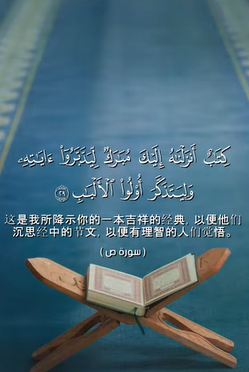 كِتَٰبٌ أَنزَلۡنَٰهُ إِلَيۡكَ مُبَٰرَكٞ لِّيَدَّبَّرُوٓاْ ءَايَٰتِهِۦ
وَلِيَتَذَكَّرَ أُوْلُواْ ٱلۡأَلۡبَٰبِ ٢٩
这是我所降示你的一本吉祥的经典，以便他们
沉思经中的节文，以便有理智的人们觉悟。
( سورة ص )